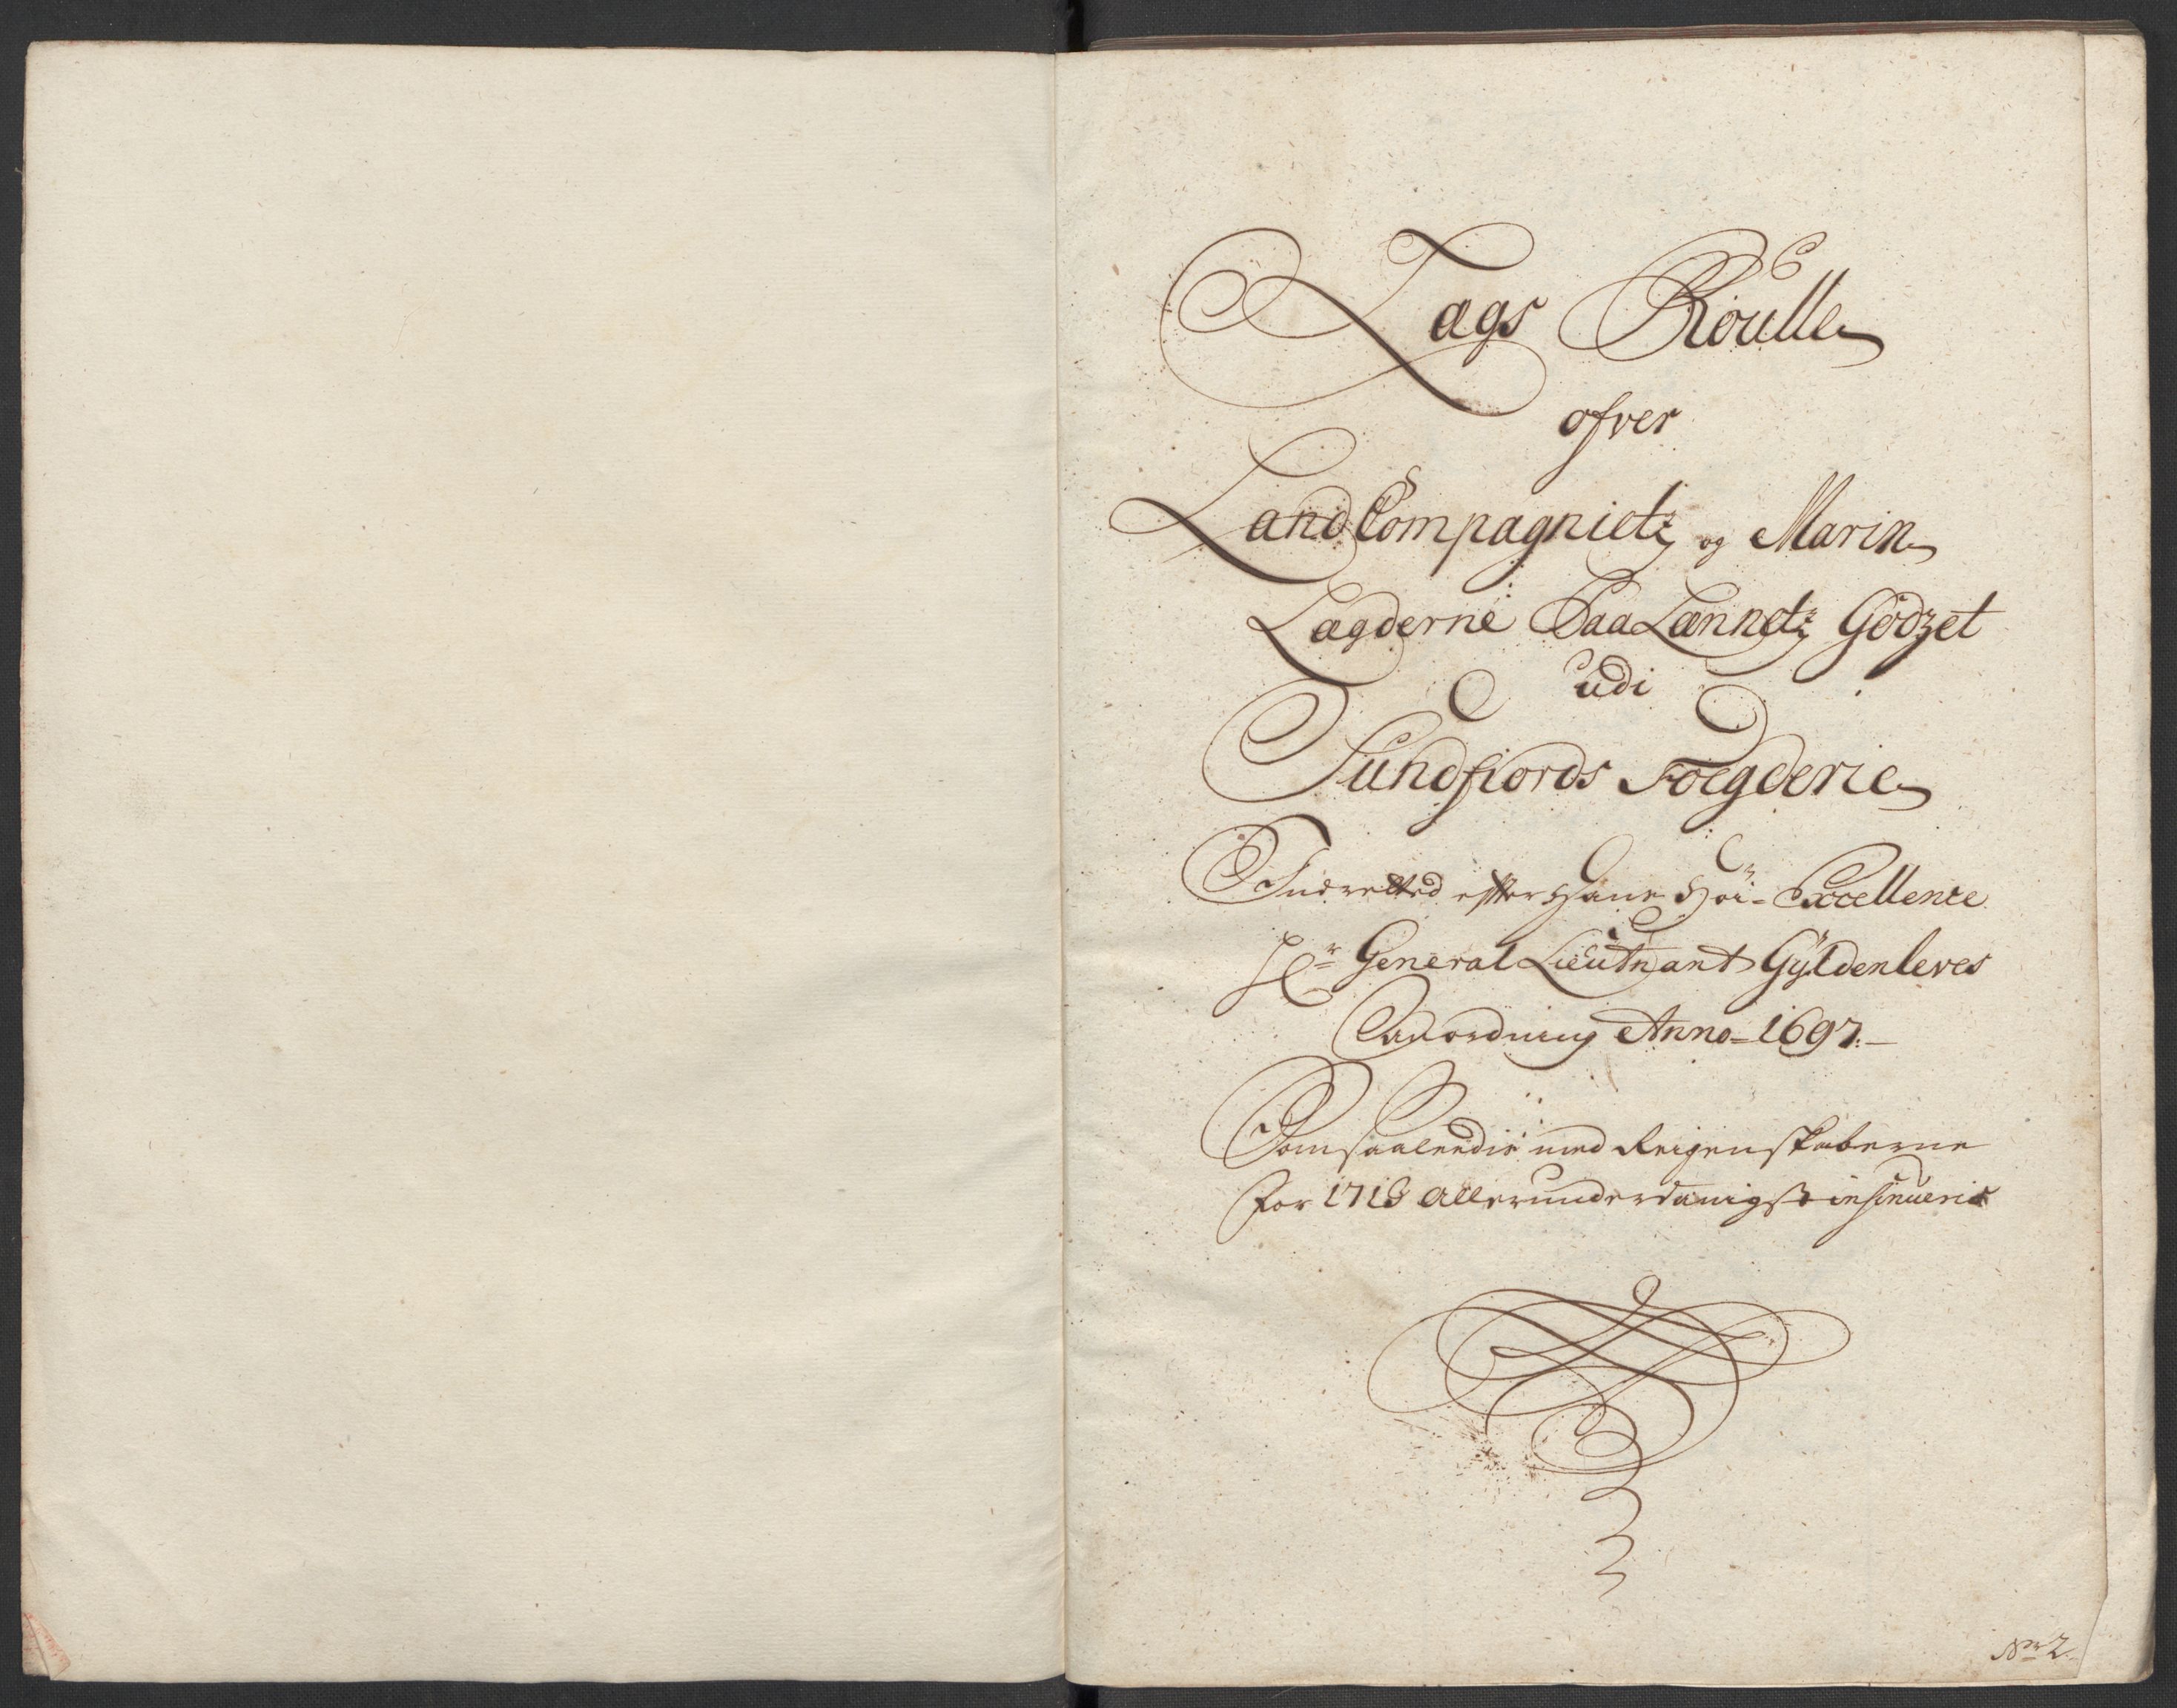 Lægs Roulle
ofver
Land Compagniets og Marin
Lægderne Paa Lænnets Godzet
udi
Sundfiords Foegderie
Indretted efter Hans Höi- Excellence
Hr General Lieutnant Gyldenleves
Anordning Anno 1697.
Som saaledis med Reigenskaberne
for 1718 Allerunderdanigst insinueris
No 2.